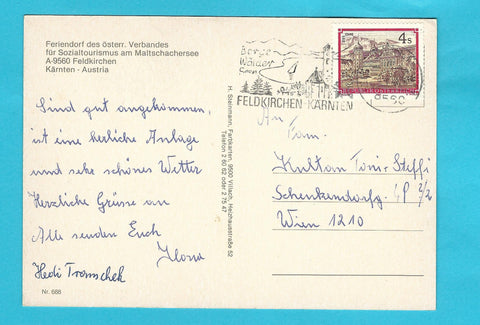 Feriendorf des österr. Verbandes
für Sozialtourismus am Maltschachersee
A-9560 Feldkirchen
Kärnten · Austria
Sind gut angekommen,
ist eine herrliche Anlage
und sehr schönes Wetter
Herzliche Grüsse an
Alle senden Euch
Ilona
Hedi Tromschek
Nr. 688
H. Steinmann, Farbkarten, 9500 Villach, Heizhausstraße 52
Telefon 2 60 62 oder 2 75 47
Berge
Wälder
Seen
FELDKIRCHEN-KÄRNTEN
4 S
REPUBLIK ÖSTERREICH
9560
An
Fam.
Kultan Toni-Steffi
Schenkendorfg.
Wien 1210